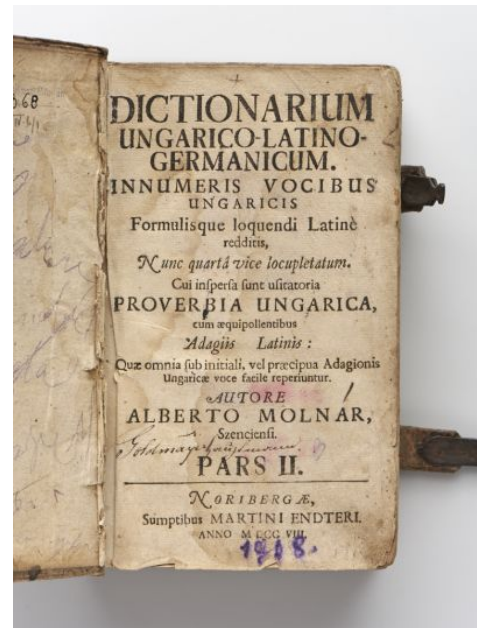 68
DICTIONARIUM
UNGARICO-LATINO-
GERMANICUM.
INNUMERIS VOCIBUS
UNGARICIS
Formulisque loquendi Latinè
redditis,
Nunc quartâ vice locupletatum.
Cui inſperſa ſunt uſitatoria
PROVERBIA UNGARICA,
cum æquipollentibus
Adagiis Latinis:
Quæ omnia ſub initiali, vel præcipua Adagionis
Ungaricæ voce facile reperiuntur.
AUTORE
ALBERTO MOLNAR,
Szencienſi.
PARS II.
NORIBERGÆ,
Sumptibus MARTINI ENDTERI.
ANNO M DCC VIII.
1708.